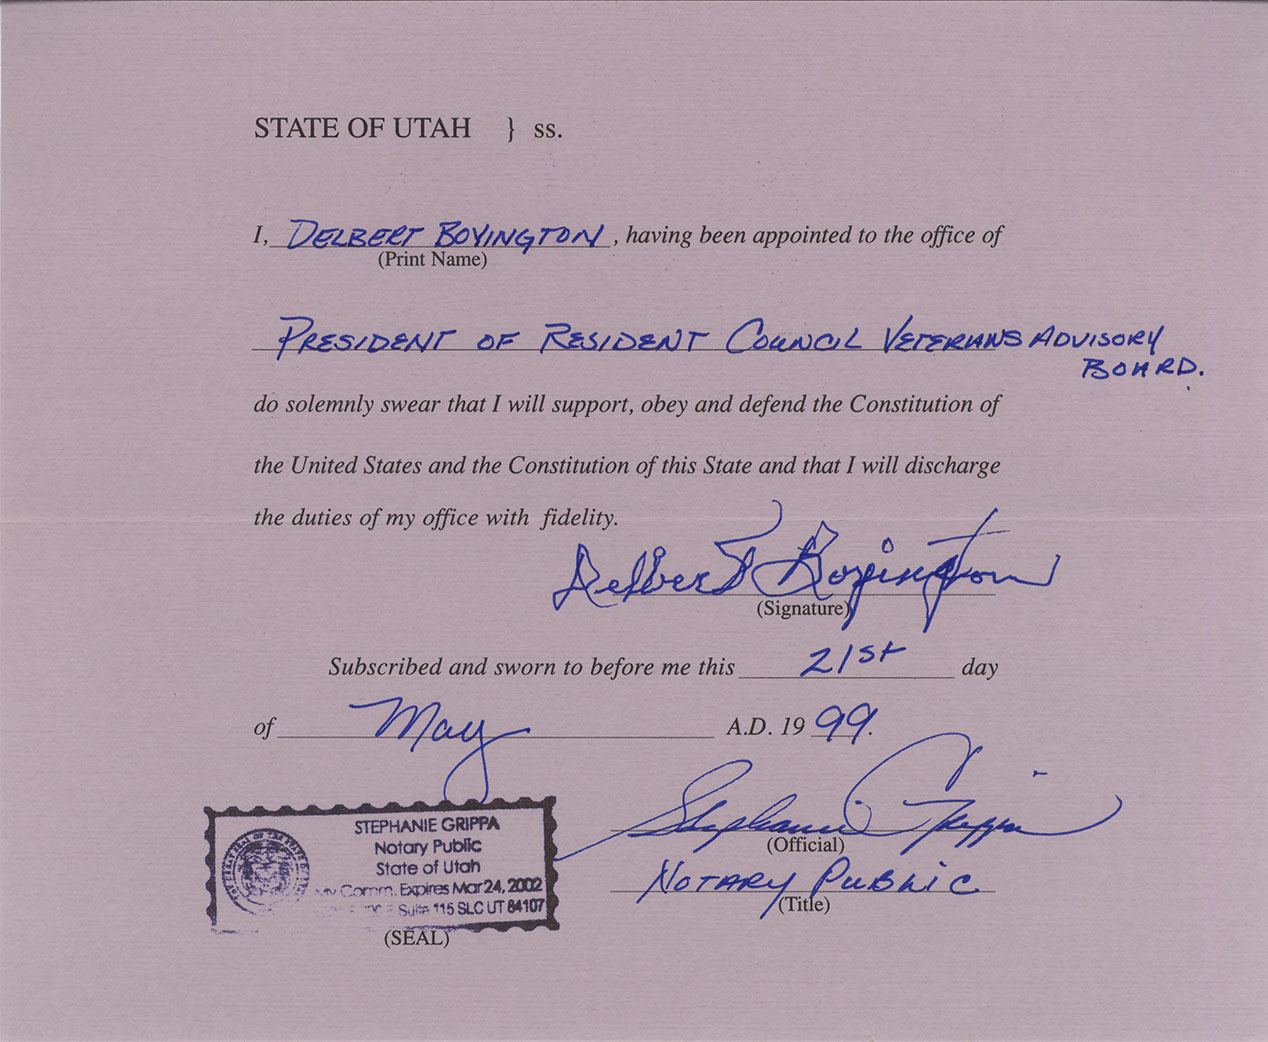 STATE OF UTAH } ss.
I, DELBERT BOVINGTON, having been appointed to the office of
(Print Name)
PRESIDENT OF RESIDENT COUNCIL VETERANS ADVISORY
BOARD.
do solemnly swear that I will support, obey and defend the Constitution of
the United States and the Constitution of this State and that I will discharge
the duties of my office with fidelity.
Delbert Bovington
(Signature)
Subscribed and sworn to before me this 21st day
of May A.D. 19 99.
STEPHANIE GRIPPA
Notary Public
State of Utah
My Comm. Expires Mar 24, 2002
Suite 115 SLC UT 84107
(SEAL)
Stephanie Grippa
(Official)
NOTARY PUBLIC
(Title)